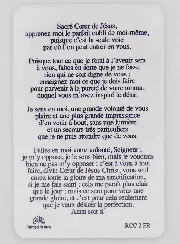 Sacré Cœur de Jésus,
apprenez moi le parfait oubli de moi-même,
puisque c'est la seule voie
par où l'on peut entrer en vous.
Puisque tout ce que je ferai à l'avenir sera
à vous, faites en sorte que je ne fasse
rien qui ne soit digne de vous ;
enseignez moi ce que je dois faire
pour parvenir à la pureté de votre amour,
duquel vous m'avez inspiré le désir.
Je sens en moi, une grande volonté de vous
plaire et une plus grande impuissance
d'en venir à bout, sans une lumière
et un secours très particuliers
que je ne puis attendre que de vous.
Faites en moi votre volonté, Seigneur,
je m'y oppose, je le sens bien, mais je voudrais
bien ne pas m'y opposer : c'est à vous à tout
faire, divin Cœur de Jésus Christ, vous seul
aurez toute la gloire de ma sanctification,
si je me fais saint ; cela me paraît plus clair
que le jour ; mais ce sera pour vous une
grande gloire, et c'est pour cela seulement
que je veux désirer la perfection.
Ainsi soit-il
RCC 2 FR